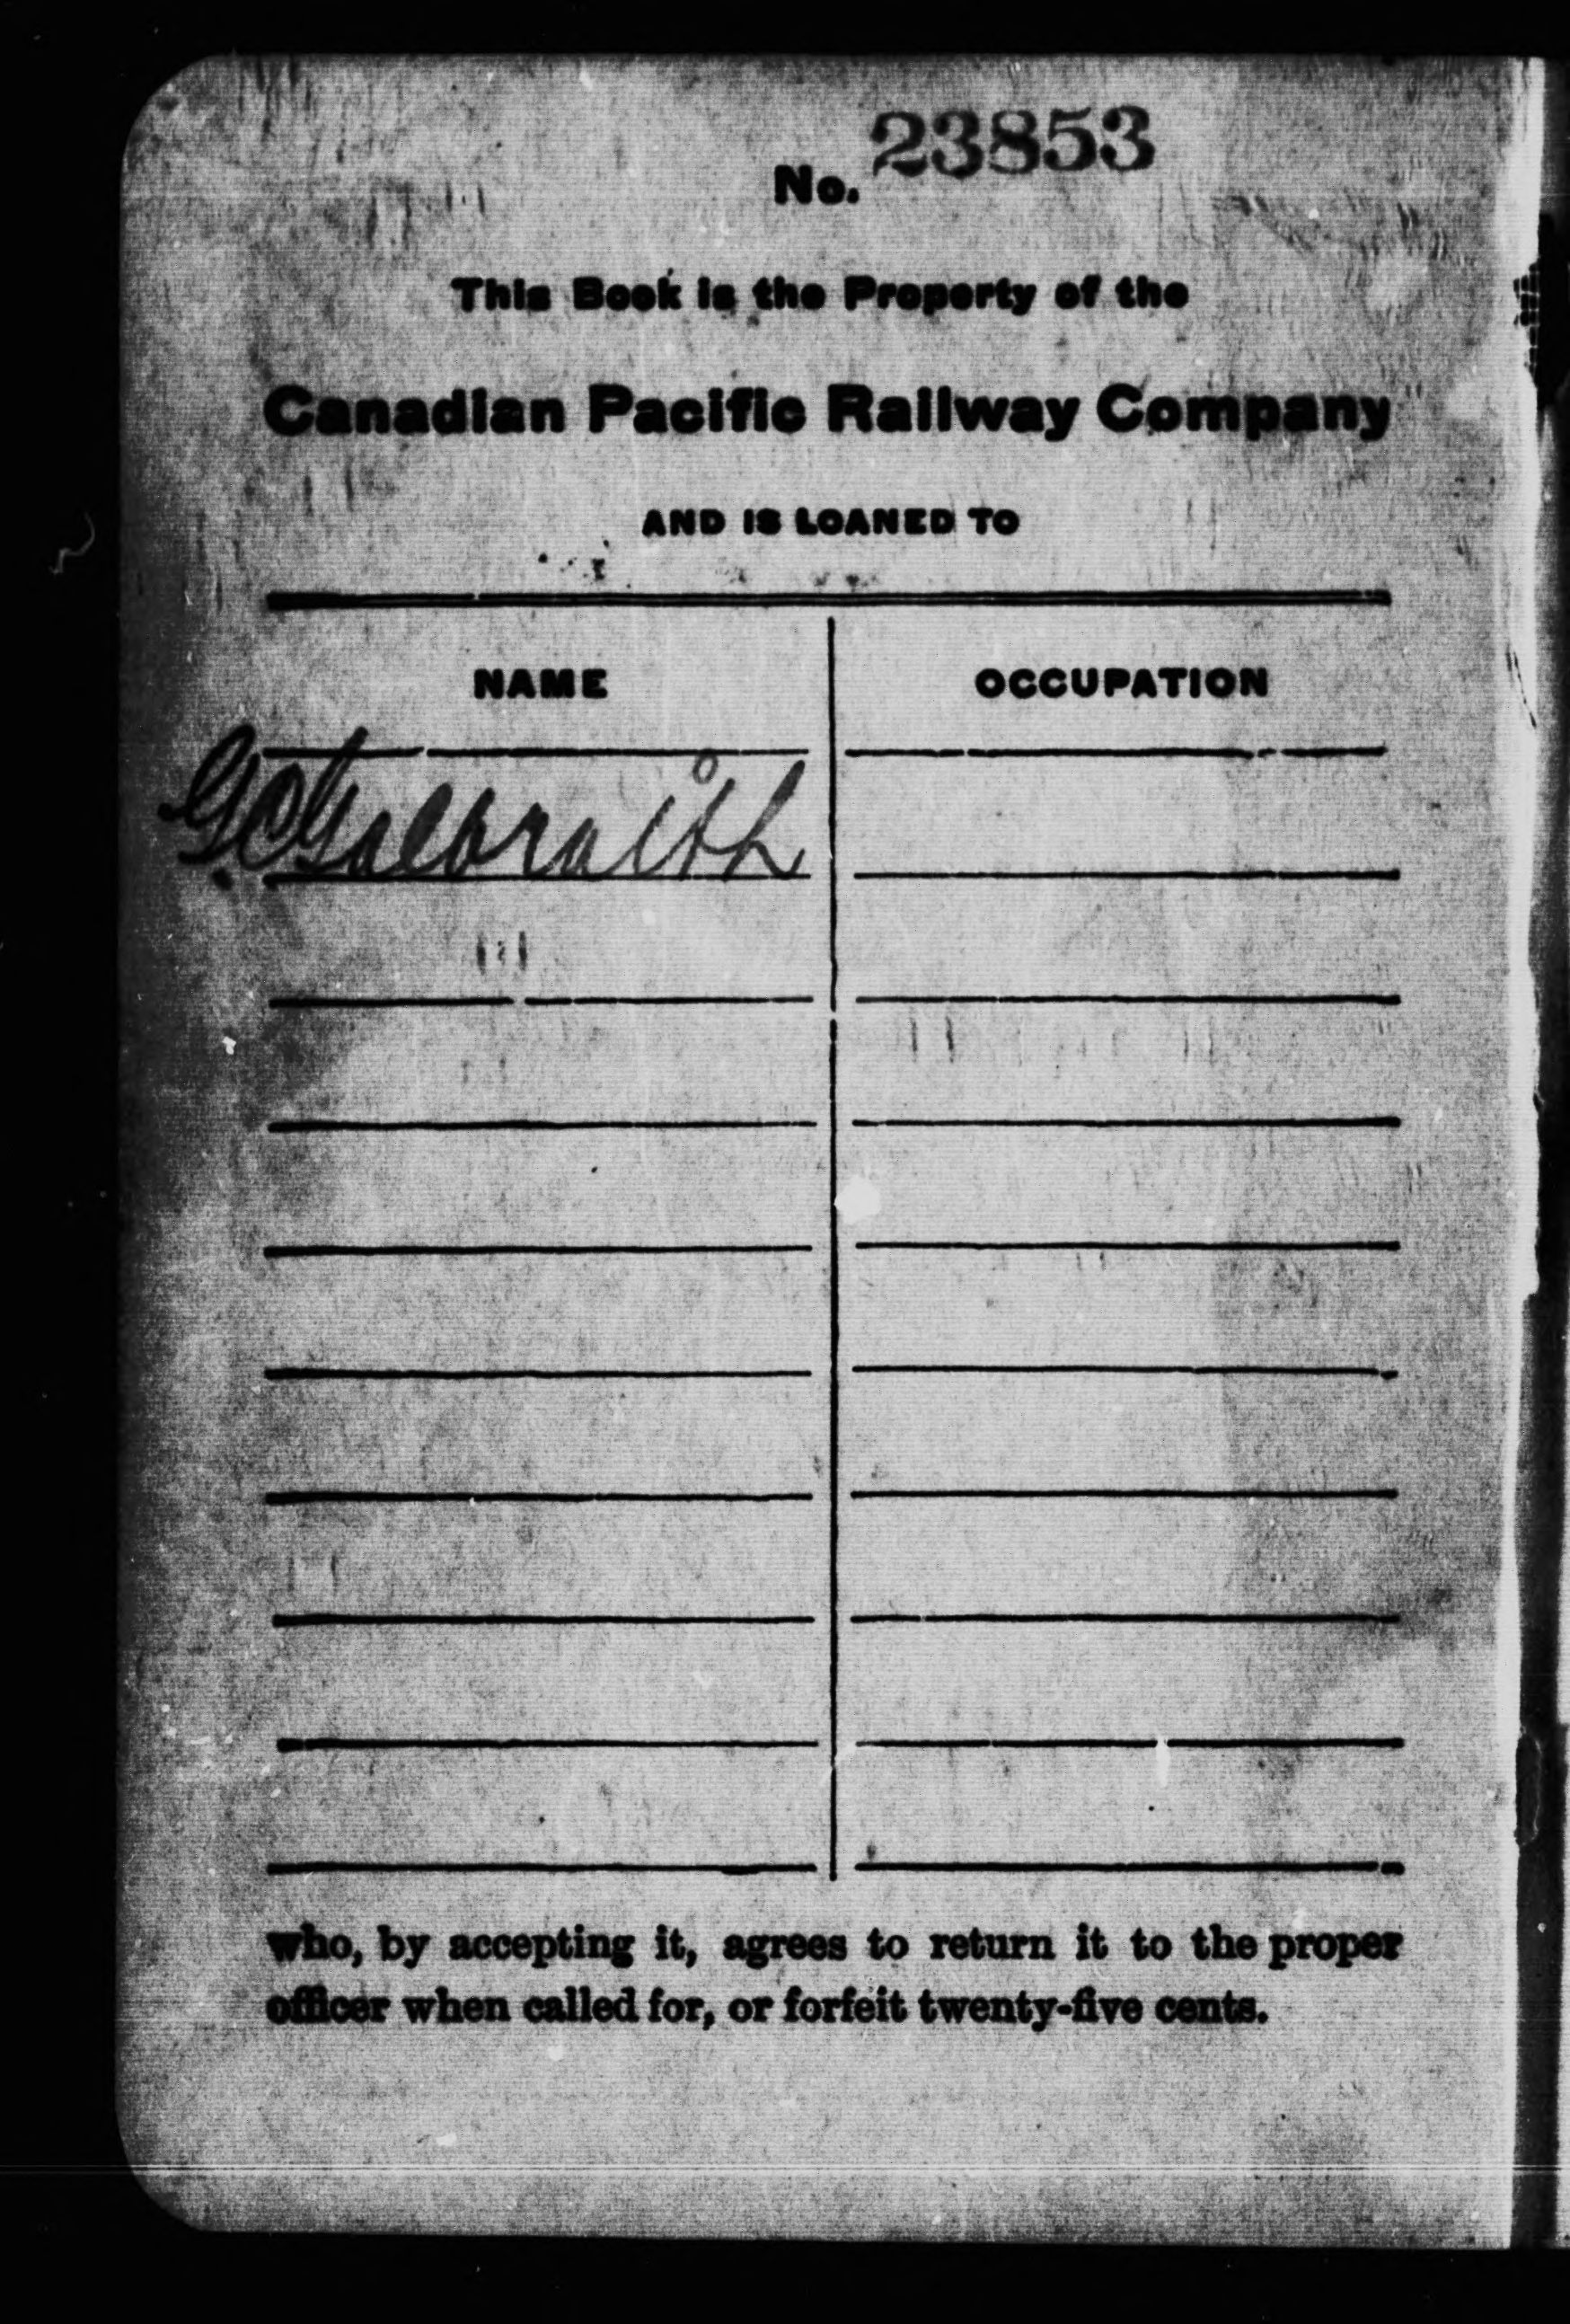 No. 23853
This Book is the Property of the
Canadian Pacific Railway Company
AND IS LOANED TO
NAME OCCUPATION
G C Galbraith
who, by accepting it, agrees to return it to the proper
officer when called for, or forfeit twenty-five cents.